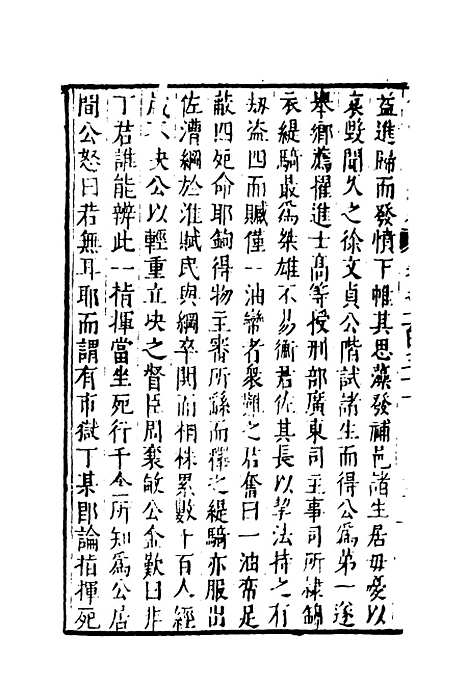 益進歸而發憤下帷其思藻發補邑諸生居毋憂以
哀毀聞久之徐文貞公階試諸生而得公為第一遂
舉鄉薦擢進士高等授刑部廣東司主事司所隸錦
衣緹騎最為桀雄不易衡君佐其長以挈法持之有
刼盜四而贓僅一油幣者衆難之君奮曰一油帑足
蔽四死命耶鉤得物主審所繇而釋之緹騎亦服出
佐漕綱於淮賦民與綱卒鬨而相株累數十百人經
歲不決公以輕重立決之督臣周襄敏公金歎曰非
丁君誰能辨此一指揮當坐死行千金所知為公居
間公怒曰若無耳耶而謂有市獄丁某郎論指揮死